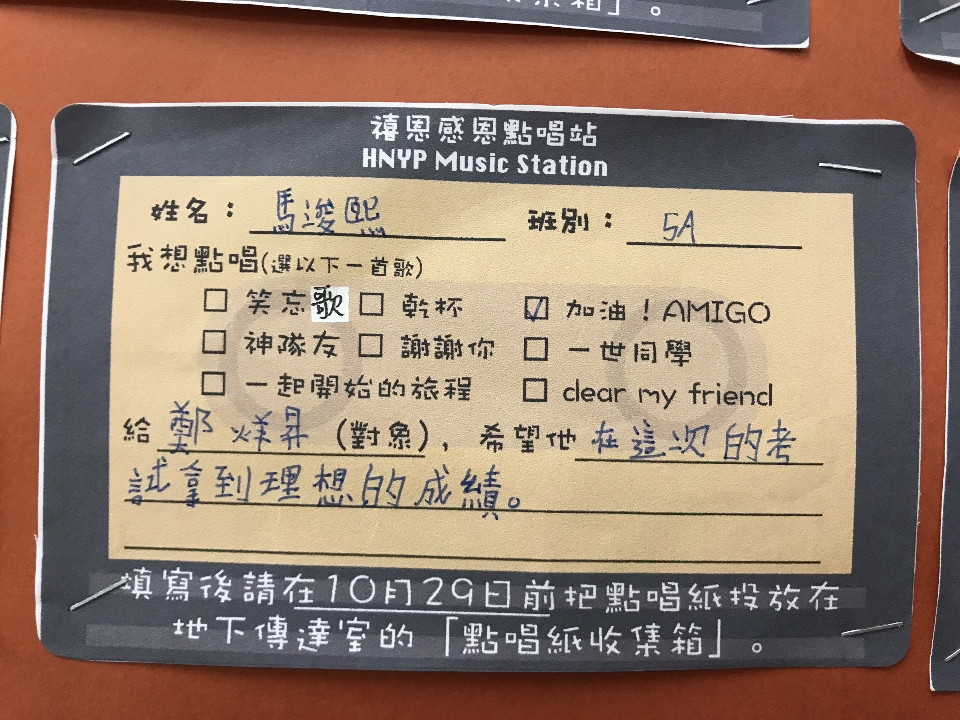 集箱」。
禧恩感恩點唱站
HNYP Music Station
姓名：馬浚熙 班別：5A
我想點唱(選以下一首歌)
□ 笑忘歌 □ 乾杯 ☑ 加油！AMIGO
□ 神隊友 □ 謝謝你 □ 一世同學
□ 一起開始的旅程 □ dear my friend
給 鄭烊昇 (對象)，希望他在這次的考
試拿到理想的成績。
填寫後請在10月29日前把點唱紙投放在
地下傳達室的「點唱紙收集箱」。